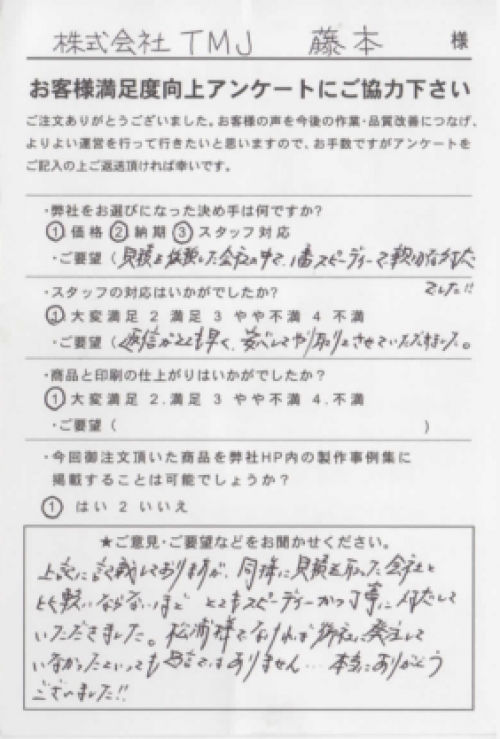 株式会社TMJ 藤本 様
お客様満足度向上アンケートにご協力下さい
ご注文ありがとうございました。お客様の声を今後の作業・品質改善につなげ、
よりよい運営を行って行きたいと思いますので、お手数ですがアンケートを
ご記入の上ご返送頂ければ幸いです。
・弊社をお選びになった決め手は何ですか?
① 価格 ② 納期 ③ スタッフ対応
・ご要望 ( 見積を依頼した会社の中で、1番スピーディーで親切な対応
でした!!
・スタッフの対応はいかがでしたか?
① 大変満足 2 満足 3 やや不満 4 不満
・ご要望 ( 返信がとても早く、安心してやり取りをさせていただきました。
・商品と印刷の仕上がりはいかがでしたか?
① 大変満足 2.満足 3 やや不満 4.不満
・ご要望 ( )
・今回御注文頂いた商品を弊社HP内の製作事例集に
掲載することは可能でしょうか?
① はい 2 いいえ
★ご意見・ご要望などをお聞かせください。
上記に記載しておりますが、同様に見積を取った会社と
比較にならないほど とてもスピーディーかつ丁寧に対応して
いただきました。松浦様でなければ御社に発注して
いなかったといっても過言ではありません… 本当にありがとう
ございました!!